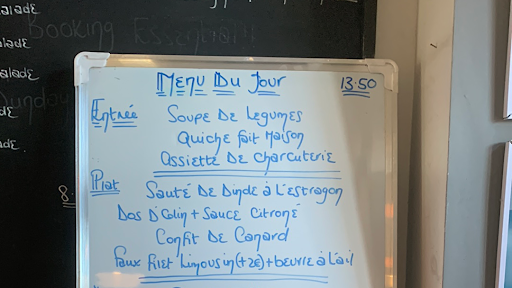 alade
Booking Essential
alade
alade
Sunday
de
ade.
8.
Menu Du Jour 13.50
Entrée Soupe De Legumes
Quiche fait Maison
Assiette De charcuterie
Plat Sauté De Dinde à L'estragon
Dos D'Colin + Sauce Citroné
Confit De Canard
Faux Filet Limousin (+2€) + beurre à L'ail